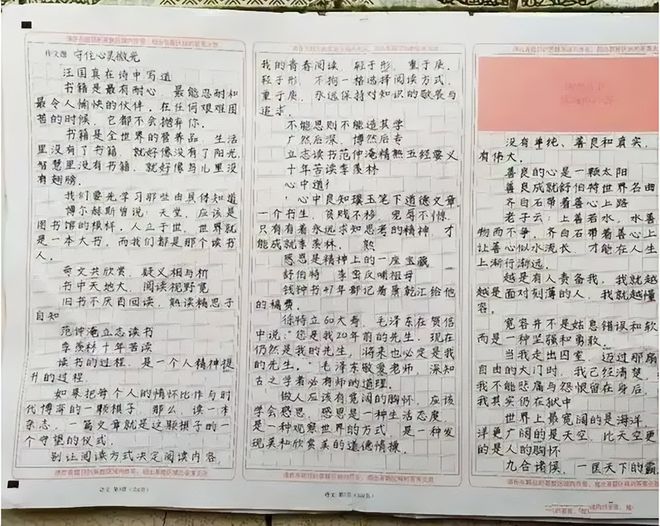 作文题 守住心灵微光
汪国真在诗中写道
书籍是最有耐心、最能忍耐和
最令人愉快的伙伴,在任何艰难困
苦的时候,它都不会抛弃你。
书籍是全世界的营养品,生活
里没有了书籍,就好像没有了阳光,
智慧里没有书籍,就好像鸟儿里没
有翅膀。
我们要先学习那些由具体知道
博尔赫斯曾说:天堂,应该是
图书馆的模样,人立于世,世界就
是一本大书,而我们都是那个读书
人。
奇文共欣赏,疑义相与析
书中天地大,阅读视野宽
旧书不厌百回读,熟读精思子
自知
范仲淹立志读书
季羡林十年苦读
读书的过程,是一个人精神提
升的过程,
如果把每个人的情怀比作与时
代博弈的一颗棋子,那么,读一本
杂志,一篇文章就是这颗棋子的一
个守望的仪式,
别让阅读方式决定阅读内容,
语文 第3页(共6页)
我的青春阅读,轻于形,重于质,
轻于形,不拘一格选择阅读方式,
重于质,永远保持对知识的敬畏与
追求。
不能思则不能造其学
广然后深,博然后专
立志读书范仲淹精熟五经要义
十年苦读季羡林
心中道
心中良知璞玉笔下道德文章
一个书生,贫贱不移,宠辱不惊,
只有有着永远求知思考的精神,才
能成就季羡林。
感恩是精神上的一座宝藏
舒伯特 李密反哺祖母
钱钟书47年都记着萧乾汇给他
的稿费,
徐特立60大寿,毛泽东在贺信
中说:"您是我20年前的先生,现在
仍然是我的先生,将来也必定是我
的先生。"毛泽东敬爱老师,深知
古之学者必有师的道理。
做人应该有宽阔的胸怀,应该
学会感恩,感恩是一种生活态度,
是一种观察世界的方式,是一种发
现美和欣赏美的道德情操。
没有单纯、善良和真实,
有伟大。
善良的心是一颗太阳
善良成就舒伯特世界名曲
齐白石带着善心上路
老子云:上善若水,水善
物而不争,齐白石带着善心上
让善心似水流长,才能在人生
上渐行渐远。
越是有人责备我,我就越
越是面对刻薄的人,我就越懂
容。
宽容并不是姑息错误和软
而是一种坚强和勇敢。
当我走出囚室,迈过那扇
自由的大门时,我已经清楚
我不能悲痛与怨恨留在身后,
我其实仍在狱中
世界上最宽阔的是海洋,
洋更广阔的是天空,比天空更
的是人的胸怀
九合诸侯,一匡天下的霸